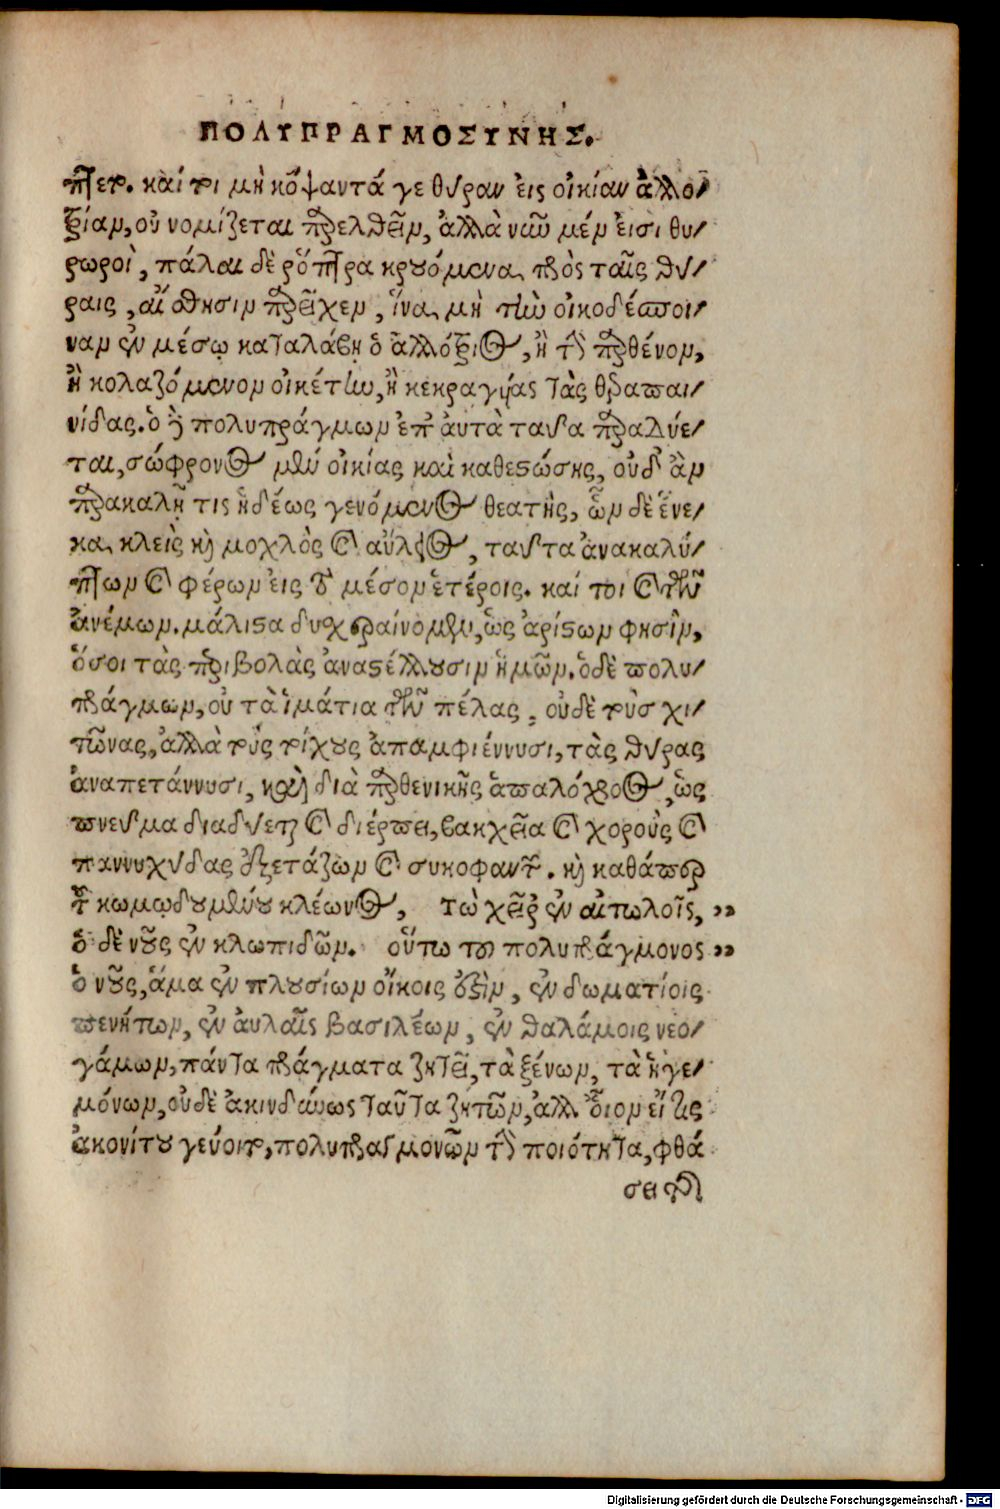 ΠΟΛΥΠΡΑΓΜΟΣΥΝΗΣ.
πτεται. καίτοι μὴ κόψαντά γε θύραν εἰς οἰκίαν ἀλλο/
τρίαν, οὐ νομίζεται παρελθεῖν, ἀλλὰ νῦν μέν εἰσι θυ/
ρωροὶ, πάλαι δὲ ῥόπτρα κρουόμενα πρὸς ταῖς θύ/
ραις, αἴσθησιν παρεῖχεν, ἵνα μὴ τὴν οἰκοδέσποι/
ναν ἐν μέσῳ καταλάβῃ ὁ ἀλλότριος, ἢ τὴν παρθένον,
ἢ κολαζόμενον οἰκέτην, ἢ κεκραγυίας τὰς θεραπαι/
νίδας. ὁ δὲ πολυπράγμων ἐπ' αὐτὰ ταῦτα παραδύε/
ται, σώφρονος μὲν οἰκίας καὶ καθεστώσης, οὐδ' ἂν
παρακαλῇ τις ἡδέως γενόμενος θεατὴς, ὧν δὲ ἕνε/
κα κλεὶς καὶ μοχλὸς καὶ αὔλειος, ταῦτα ἀνακαλύ/
πτων καὶ φέρων εἰς τὸ μέσον ἑτέροις. καίτοι καὶ τῶν
ἀνέμων. μάλιστα δυσχεραίνομεν, ὡς ἀρίστων φησὶν,
ὅσοι τὰς περιβολὰς ἀναστέλλουσιν ἡμῶν. ὁ δὲ πολυ/
πράγμων, οὐ τὰ ἱμάτια τῶν πέλας, οὐδὲ τοὺς χι/
τῶνας, ἀλλὰ τοὺς τοίχους ἀπαμφιέννυσι, τὰς θύρας
ἀναπετάννυσι, καὶ διὰ παρθενικῆς ἁπαλόχροος, ὡς
πνεῦμα διαδύεται καὶ διέρπει, βακχεῖα καὶ χοροὺς καὶ
παννυχίδας ἐξετάζων καὶ συκοφαντῶν. καὶ καθάπερ
τοῦ κωμῳδουμένου κλέωνος, Τὼ χεῖρ' ἐν αἰτωλοῖς, ,,
ὁ δὲ νοῦς ἐν κλωπιδῶν. οὕτω τοῦ πολυπράγμονος ,,
ὁ νοῦς, ἅμα ἐν πλουσίων οἴκοις ἐστὶν, ἐν δωματίοις
πενήτων, ἐν αὐλαῖς βασιλέων, ἐν θαλάμοις νεο/
γάμων, πάντα πράγματα ζητεῖ, τὰ ξένων, τὰ ἡγε/
μόνων, οὐδὲ ἀκινδύνως ταῦτα ζητῶν, ἀλλ' οἷον εἴ τις
ἀκονίτου γεύοιτο, πολυπραγμονῶν τὴν ποιότητα, φθά
Digitalisierung gefördert durch die Deutsche Forschungsgemeinschaft - DFG